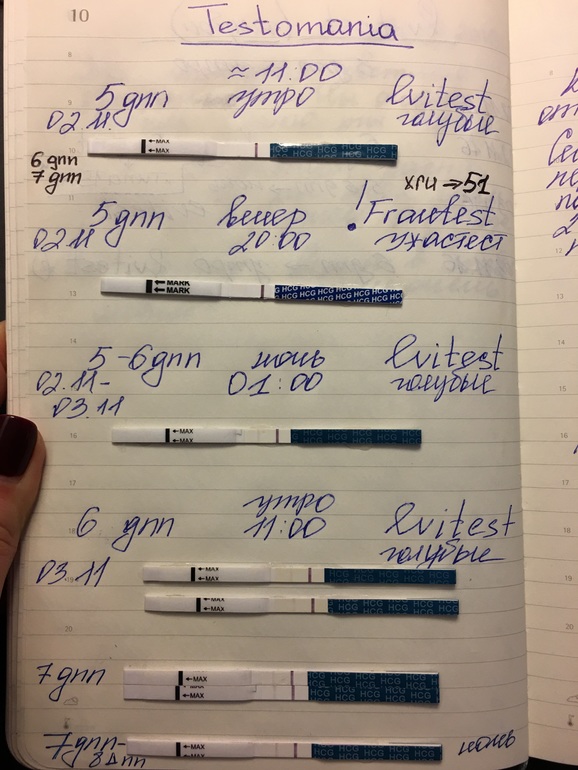 10
Testomania
≈ 11:00
5 дпп утро Evitest
02.11. голубые
← MAX
← MAX
HCG HCG HCG HCG
6 дпп
7 дпп
хгч ⇒ 51
5 дпп вечер ! Frautest
02.11 20:00 ужастест
← MARK
← MARK
HCG HCG HCG HCG HCG HCG
5-6 дпп ночь Evitest
02.11- 01:00 голубые
03.11
← MAX
← MAX
HCG HCG HCG HCG
утро
6 дпп 11:00 Evitest
голубые
03.11
← MAX
← MAX
HCG HCG HCG HCG
← MAX
← MAX
HCG HCG HCG HCG
7 дпп
← MAX
← MAX
HCG HCG HCG HCG
7 дпп-
8 дпп
← MAX
← MAX
HCG HCG HCG HCG
ночь